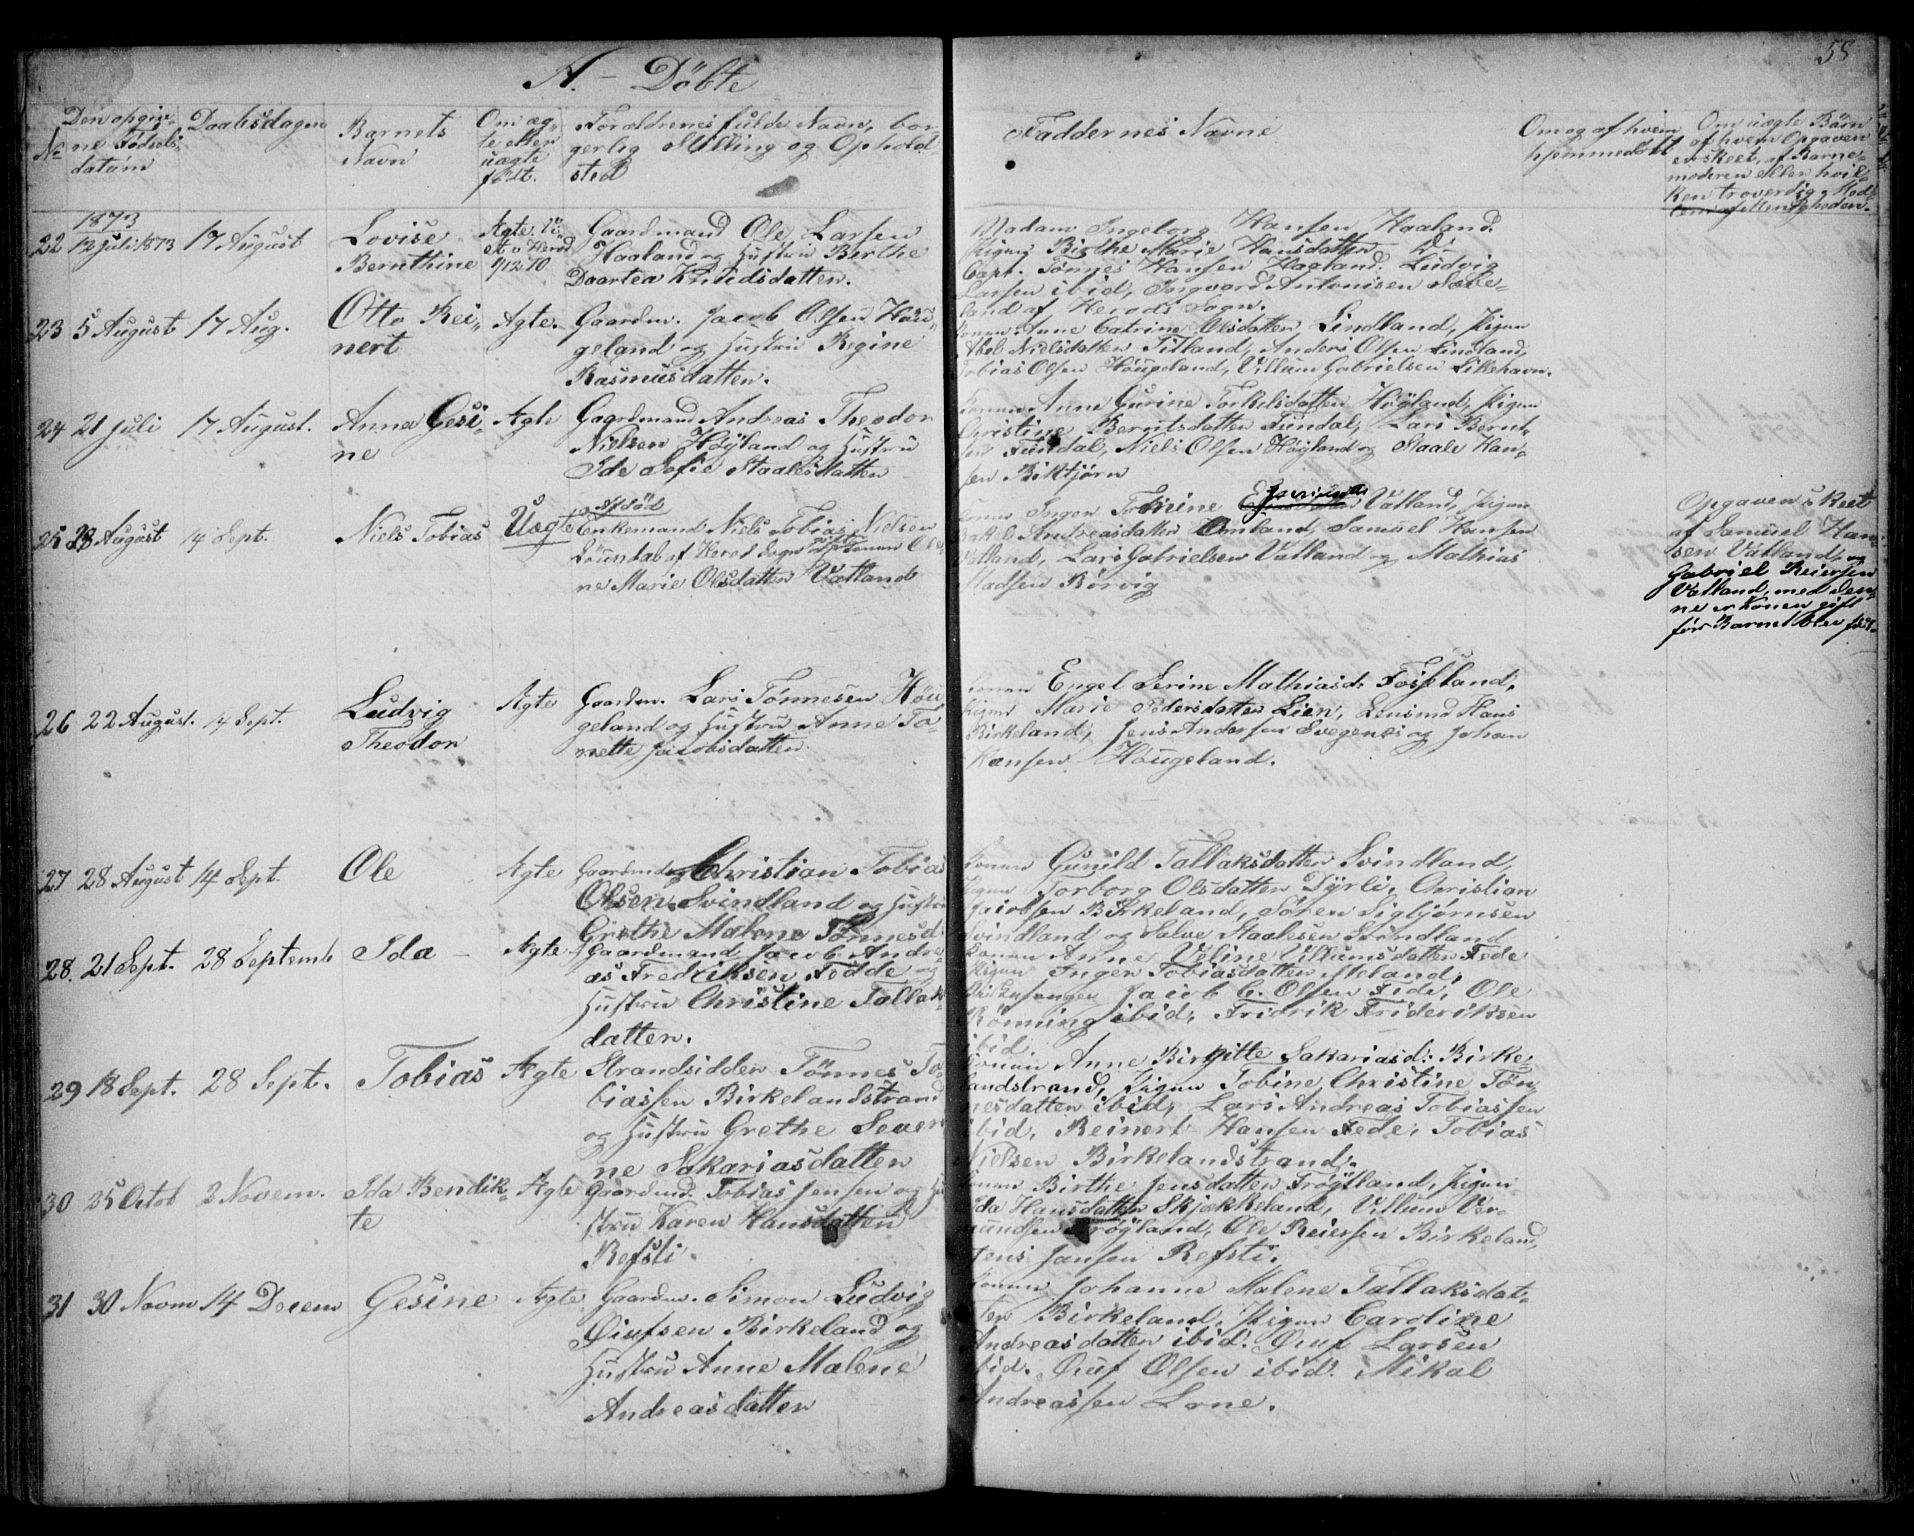 58
A. - Döbte
No
Den opgiv-
ne Födsels-
datum
Daabsdagen
Barnets
Navn
Om æg-
te eller
uægte
født.
Forældrenes fulde Navn, bor-
gerlig Stilling og Ophold-
sted
Faddernes Navne
Om og af hvem
hjemmedöbt
Om uægte Börn
af hvem Opgaven
er skeet, af Barne-
moderen eller hvil-
ken troværdig Med-
lem af Menigheden.
1873
22 12 juli 1873
17 August
Lovise
Bernthine
Ægte
Gaardmand Ole Larsen
Haaland og Hustru Berthe
Daartea Knudsdatter.
Madam Ingeborg Hansen Haaland.
Pigen Birthe Marie Hansdatter
Capt. Tönnes Hansen Haaland. Ludvig
Larsen ibid, Ingvard Antonisen Sæve-
land af Herods Sogn.
23 5 August
17 Aug.
Otto Rei-
nert
Ægte.
Gaardm. Jacob Olsen Höu-
geland og Hustru Regine
Rasmusdatter.
Konen Anne Catrine Olsdatter Lindland, Pigen
Abel Nielsdatter Titland, Anders Olsen Lindland,
Tobias Olsen Höugeland, Villum Gabrielsen Lillehavn.
24 21 juli
17 August.
Anna Gesi-
ne
Ægte
Gaardmand Andreas Theodor
Nielsen Höyland og Hustru
Ide Sofie Staalesdatter
Konen Anne Gurine Torkelsdatter Höyland, Pigen
Christine Berntsdatter Fundal, Lars Bernt-
sen Fundal, Niels Olsen Höyland og Staale Han-
sen Biktjørn
25 28 August
14 Sept.
Niels Tobias
Uægte
Afdød
Enkemand Niels Tobias Nielsen
af Herod Sogn Konen Ol-
ne Marie Olsdatter Vatland
Konen Inger Tomine Vatland, Pigen
Rakel Andreasdatter Omland, Samuel Hansen
Vatland, Lars Gabrielsen Vatland og Mathias
Madsen Börvig
Opgaven skeet
af Samuel Han-
sen Vatland og
Gabriel Reiersen
Vatland, med den-
ne er Konen gift
för Barnet blev föd-
26 22 August.
14 Sept.
Ludvig
Theodor
Ægte
Gaardm. Lars Tönnesen Höu-
geland og Hustru Anne To-
nette Jacobsdatter
Konen Engel Serine Mathiasd. Fosseland,
Pigen Marie Pedersdatter Lien, Lensmd Hans
Birkeland, Jens Andersen Svegenes og Johan
Hansen Höugeland.
27 28 August
14 Sept.
Ole
Ægte
Gaardmd Christian Tobias
Olsen Svindland og Hustru
Grethe Malene Tönnesd.
Konen Gunild Tallaksdatter Svindland,
Pigen Torborg Olsdatter Dyrli, Christian
Jacobsen Birkeland, Sören Sigbjörnsen
Svindland og Salve Staalesen Svindland
28. 21 Sept.
28 Septemb
Ida -
Ægte
Gaardmand Jacob Andre-
as Fredriksen Fedde og
Hustru Christine Tallaks-
datter.
Konen Anne Veline Villumsdatter Fede
Pigen Inger Tobiasdatter Meland,
Kirkesanger Jacob C. Olsen Fede, Ole
Rönning ibid, Fridrik Frideriksen
ibid.
29 18 Sept.
28 Sept.
Tobias
Ægte
Strandsidder Tönnes To-
biassen Birkelandstrand
og Hustru Grethe Sever-
ne Sakariasdatter
Konen Anne Birgitte Sakariasd. Birke-
landstrand, Pigen Tobine Christine Tön-
nesdatter ibid, Lars Andreas Tobiassen
ibid, Reinert Hansen Fede, Tobias
Nielsen Birkelandstrand.
30 25 Octob
2 Novem.
Ida Bendik-
te
Ægte
Gaardmd. Tobias Jensen og Hu-
stru Karen Hansdatter
Refsti
Konen Birthe Jensdatter Fröytland, Pigen
Ida Hansdatter Skjækkeland, Villum Ver-
mundsen Fröyland, Ole Reiersen Birkeland,
Jens Jansen Refsti.
31 30 Novm
14 Decem
Gesine
Ægte
Gaardm. Simon Ludvig
Öiufsen Birkeland og
Hustru Anne Malene
Andreasdatter
Konen Johanne Malene Tallaksdat-
ter Birkeland, Pigen Caroline
Andreasdatter ibid. Öiuf Larsen
ibid. Öiuf Olsen ibid. Mikal
Andreassen Lone.